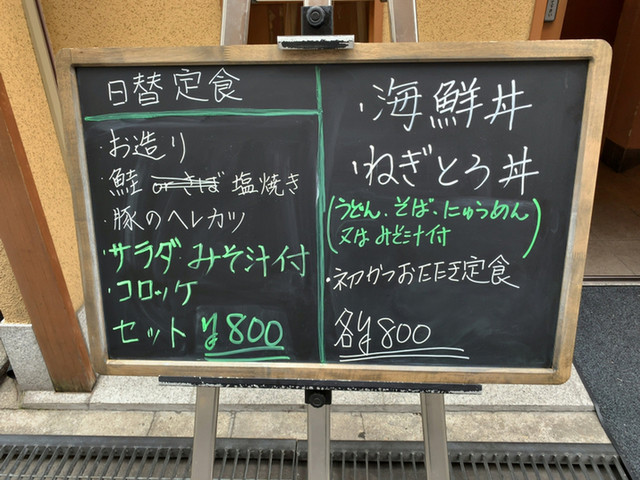 日替定食
・お造り
・鮭 orさば 塩焼き
・豚のヘレカツ
・サラダ みそ汁付
・コロッケ
セット ¥800
・海鮮丼
・ねぎとろ丼
(うどん、そば、にゅうめん
又は みそ汁付)
・初かつおたたき定食
各¥800